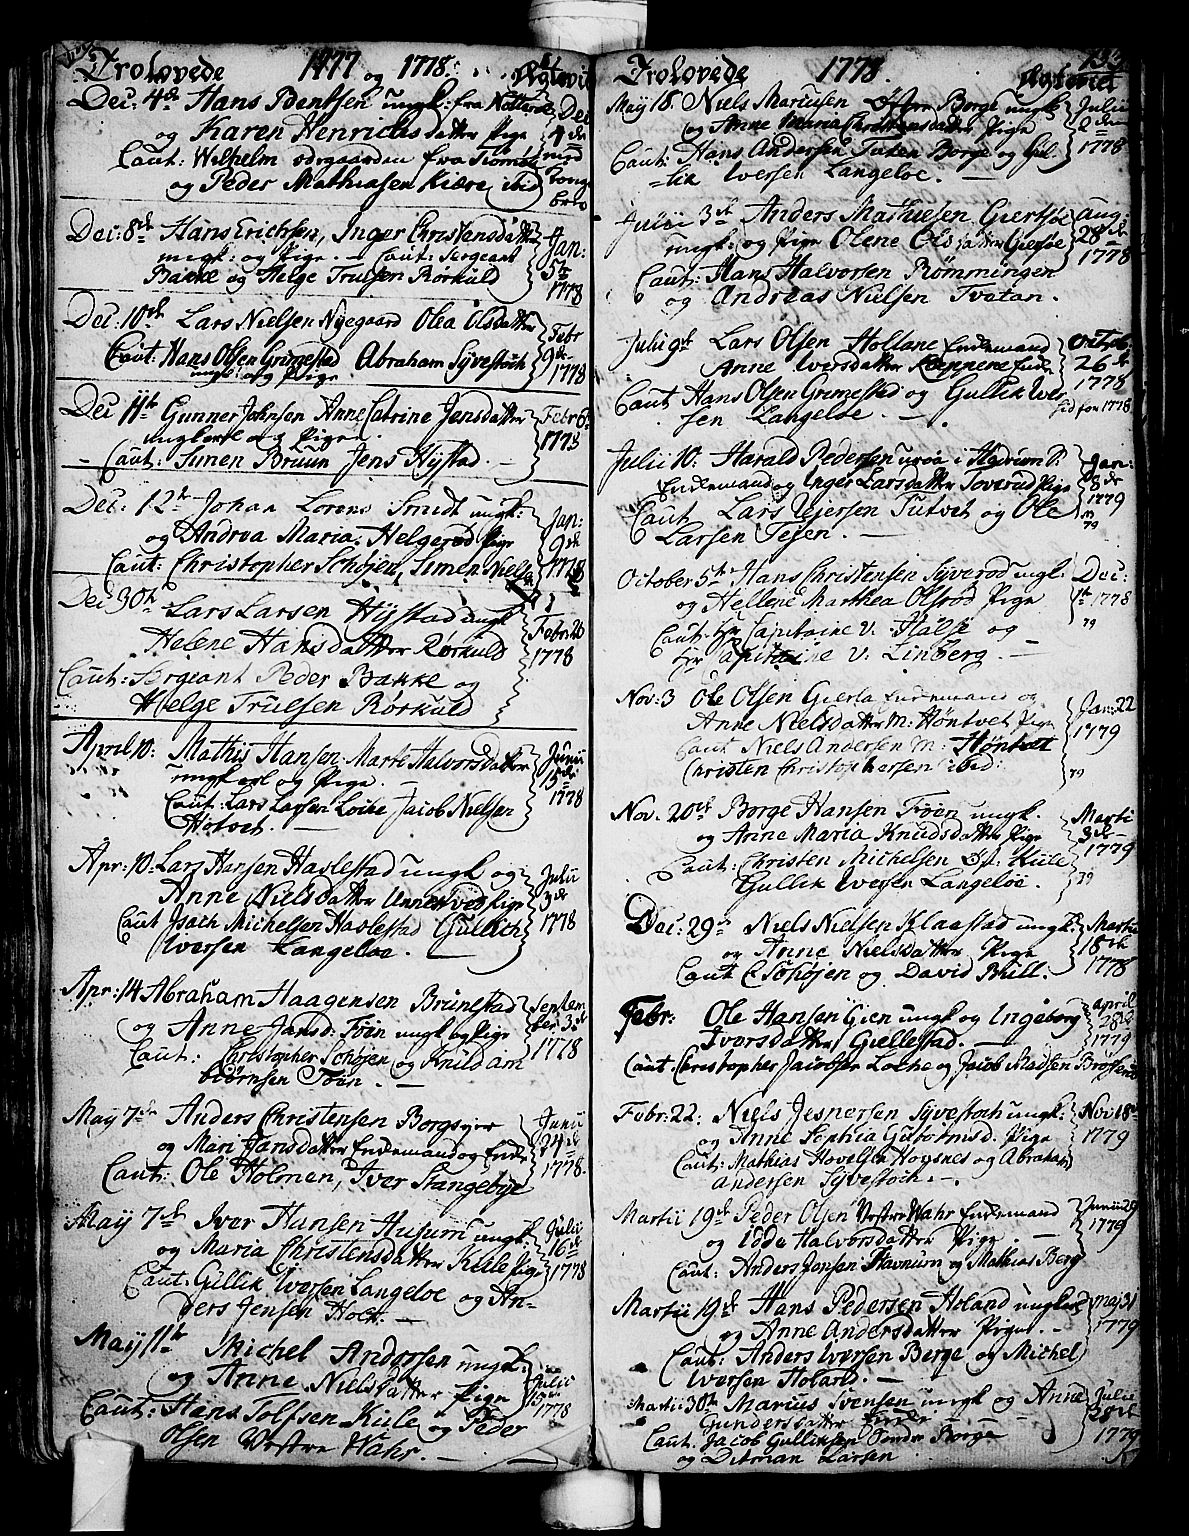 Trolovede 1777 og 1778.
Dec: 4de Hans Bentsen ungk: fra
og Karen Henrichsdatter Pige
Caut: Wilhelm fra
og Peder Mathiasen Kiære ibid
Dec:
4de
med
Dec: 8de Hans Erichsen, Inger Christensdatter
ungk: og Pige. Caut: Sergeant
Bakke og Helge Truelsen Rørkuld
Jan:
5te
1778
Dec: 10de Lars Nielsen Nyegaard Olea Olsdatter
Caut: Hans Olsen Grimestad Abraham Syvestoch
ungk: og Pige
Febr
9de
1778
Dec 11te Gunner Johnsen Anne Catrine Jensdatter
ungkerl og Pige.
Caut: Simen Bruun Jens Hystad.
Febr 6te
1778
Dec: 12te Johan Lorens Smidt ungk:
og Andrea Maria Helgerød Pige
Caut: Christopher Schøjen, Simen Niels
Jan:
9de
1778
Dec 30te Lars Larsen Hystad ungk
Helene Hansdatter Rørkuld
Caut: Sergeant Peder Bakke og
Helge Truelsen Rørkuld
Febr: 20
1778
April 10: Mathis Hansen Marte Halvorsdatter
ungkerl og Pige.
Caut: Lars Larsen Loche Jacob Nielsen
Hotvet.
Junii
15de
1778
Apr: 10: Lars Hansen Havlestad ungk og
Anne Nielsdatter Unneved Pige
Caut Isach Michelsen Havlestad Gullich
Iversen Langeloe.
Julii
3de
1778
Apr: 14 Abraham Haagensen Brunestad
og Anne Jansd: Føin ungk og Pige
Caut: Christopher Schøjen og Knud Am
biørnsen Føin.
Septem
ber 3de
1778
May 7de Anders Christensen Borgejer
og Mari Jansdatter Enkemand og Enke
Caut: Ole Holmen, Iver Stangebye
Junii
24de
1778.
May 7de Iver Hansen Husum ungk
og Maria Christensdatter Kiile Pige
Caut: Gullik Iversen Langeloe og An-
ders Jensen Holt.
Julii
16de
1778
May 11te Michel Andersen ungk:
og Anne Nielsdatter Pige
Caut: Hans Tolfsen Kiile og Peder
Olsen Vestre Wahr.
Julii
1778
Trolovede 1778. Ægteviet
May 18 Niels Mariusen Borge ungk
og Anne Maria Christensdatter Pige
Caut: Hans Andersen Borge og Gul-
lik Iversen Langeloe.
Julii
2den
1778
Julii 3de Anders Mathiesen Giertsøe
ungk: og Pige Olene Olsdatter Giersøe
Caut: Hans Halvorsen Rømmingen
og Andreas Nielsen Tvetan.
Aug:
28de
1778
Julii 9de Lars Olsen Holtane Enkemand
Anne Iversdatter Røppene Enke
Caut Hans Olsen Grimestad og Gullik Iver
sen Langeloe.
Octob:
26de
1778
Julii 10: Harald Pedersen i Hedrum P:
Enkemand og Inger Larsdatter Toverud Pige
Caut Lars Ejersen Tutvet og Ole
Larsen Feien.
Jan:
8de
1779
October 5te Hans Christensen Syverød ungk:
og Hellene Marthea Olsrød Pige
Caut: Hr Capitaine v: Halse og
Hr Capitaine v: Linberg.
Dec:
1te 1778
79
Nov: 3 Ole Olsen Gierla Enkemand og
Anne Nielsdatter M: Høntvet Pige
Caut Niels Andersen M: Høntvet
Christen Christophersen ibid:
Jan: 22
1779
79
Nov: 20de Borge Hansen Føien ungk.
og Anne Maria Knudsdatter Pige
Caut: Christen Michelsen Kiile
Gullik Iversen Langeloe.
Martii
3de
1779
79
Dec: 29de Niels Nielsen Klaastad ungk:
og Anne Nielsdatter Pige
Caut C Schøjen og David Bull.
Martii
18de
1778
Febr: Ole Hansen Gien ungk og Ingeborg
Iversdatter Giellestad.
Caut Christopher Jacobsen Loche og Jacob Madsen
April
28de
1779
Febr: 22: Niels Jespersen Syvestoch ungk:
og Anne Sophia Pige
Caut: Mathias Hovelsen Hoysnes og Abraham
Andersen Syvestoch.
Nov: 18de
1779
Martii 19de Peder Olsen Vestre Wahr Enkemand
og Edde Halvorsdatter Pige.
Caut: Anders Jonsen og Mathias Berg
Junii 29
1779
Martii 19de Hans Pedersen Holand ungkerl
og Anne Andersdatter Pige.
Caut: Anders Iversen Berge og Michel
Iversen Holand.
Maj 31
1779
Martii 30te Marius Svensen ungk og Anne
Gundersdatter Enke
Caut. Jacob Gulliksen Søndre Borge
og Ditman Larsen
Julii
28de
1779